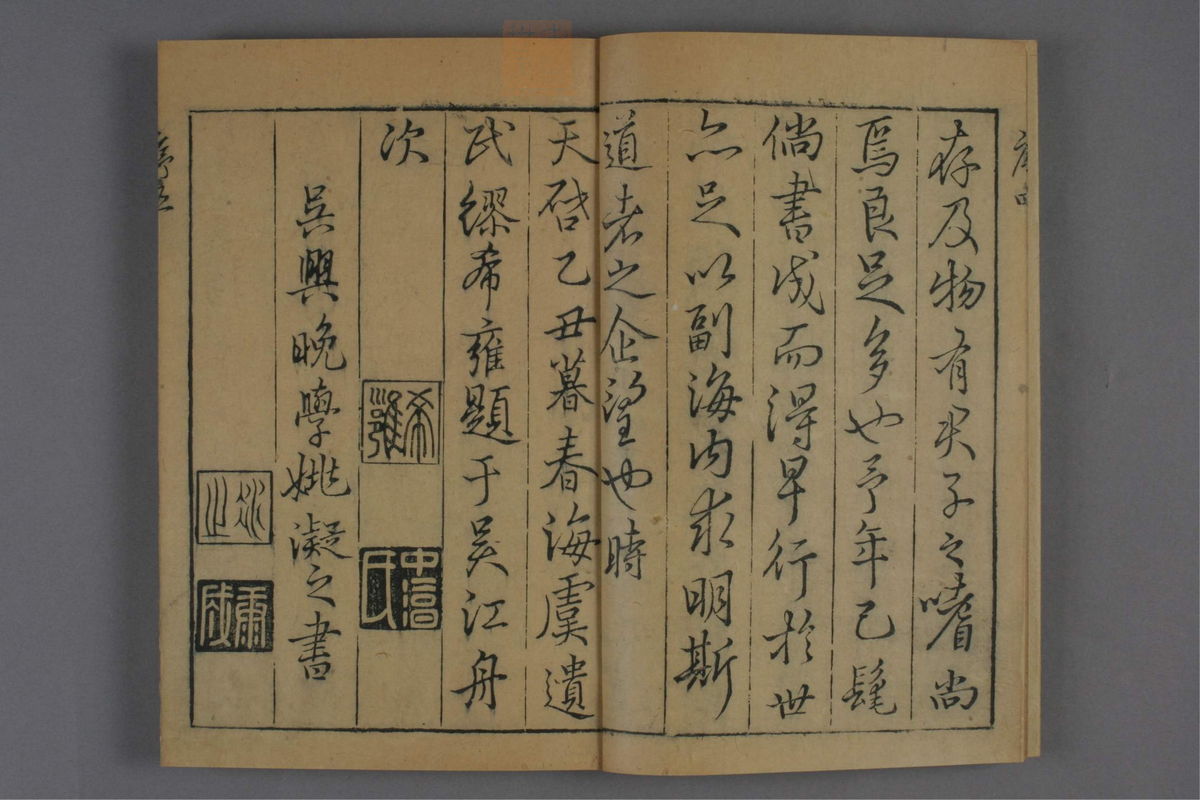 序四
存及物有矣子之嗜尚
焉良足多也予年已髦
倘書成而淂早行於世
亦足以副海内求明斯
道者之企望也時
天啓乙丑暮春海虞遺
民繆希雍題于吴江舟
次
希雍
中湻氏
吴興晚學姚凝之書
序五